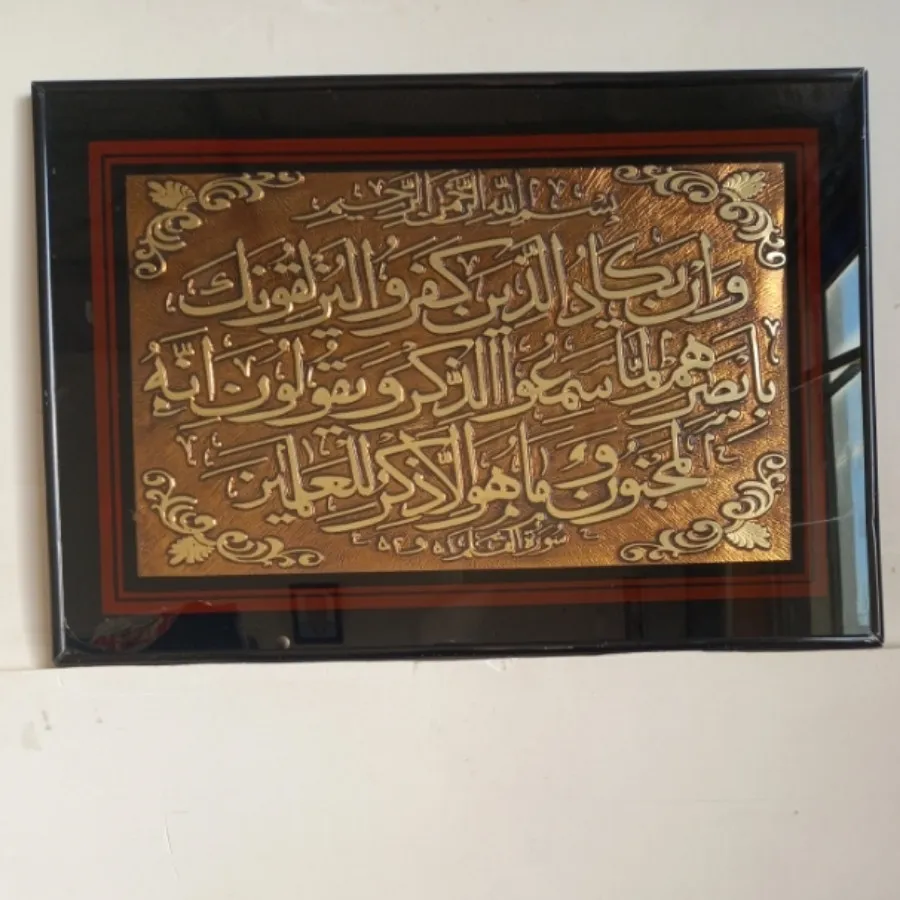 بسم الله الرحمن الرحيم
وان يكاد الذين كفروا ليزلقونك
بابصرهم لما سمعوا الذكر ويقولون انه
لمجنون وما هو الا ذكر للعلمين
سورة القلم ٥١ و ٥٢